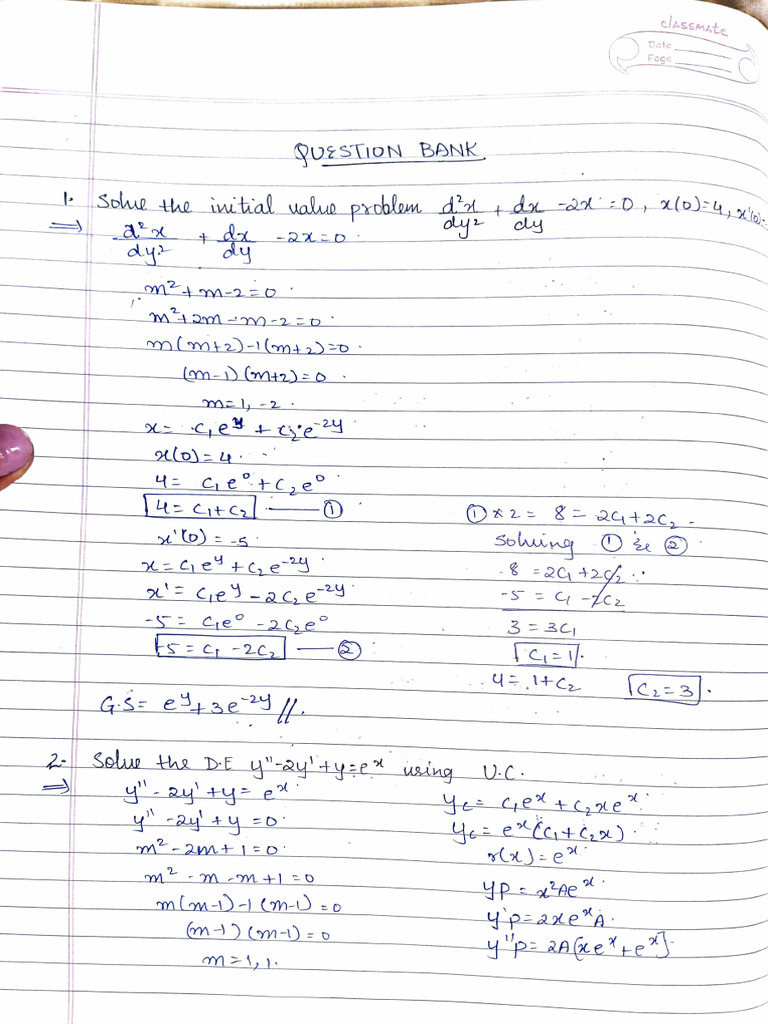 classmate
Date
Page
QUESTION BANK
1. Solve the initial value problem d²x/dy² + dx/dy -2x = 0, x(0)=4, x'(0)=
⇒ d²x/dy² + dx/dy -2x=0.
m²+m-2=0.
m²+2m-m-2=0.
m(m+2)-1(m+2)=0.
(m-1)(m+2)=0.
m=1, -2.
x= c₁e^y + c₂e^-2y
x(0)=4.
4= c₁e⁰ + c₂e⁰
4= c₁+c₂ —— ①
x'(0) = -5
x= c₁e^y + c₂e^-2y
x' = c₁e^y - 2c₂e^-2y
-5 = c₁e⁰ - 2c₂e⁰
-5 = c₁ -2c₂ —— ②
① * 2 = 8 = 2c₁+2c₂.
Solving ① & ②
8 = 2c₁ +2c₂
-5 = c₁ -2c₂
3 = 3c₁
c₁=1.
4= 1+c₂ c₂=3.
G.S= e^y+3e^-2y //.
2. Solve the D.E y''-2y'+y=e^x using U.C.
⇒ y'' - 2y' +y= e^x.
y'' -2y' +y =0.
m² -2m+1=0.
m² -m -m+1=0
m(m-1)-1(m-1)=0
(m-1)(m-1)=0
m=1,1.
y_c= c₁e^x+c₂xe^x.
y_c= e^x(c₁+c₂x).
r(x)=e^x.
yp= x²Ae^x.
y'p=2xe^xA.
y''p=2A[xe^x+e^x].